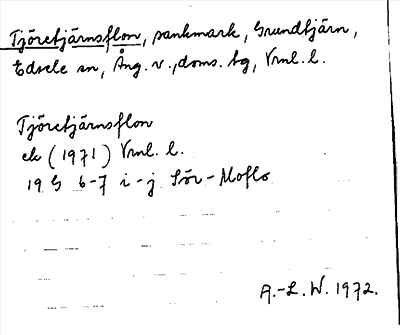 Tjöretjärnsflon, sankmark, Grundtjärn,
Edsele sn, Ång. v., doms. bg, Vrnl. l.
Tjöretjärnsflon
ek (1971) Vrnl. l.
19 G 6-7 i-j Sör-Moflo
A.-L. W. 1972.